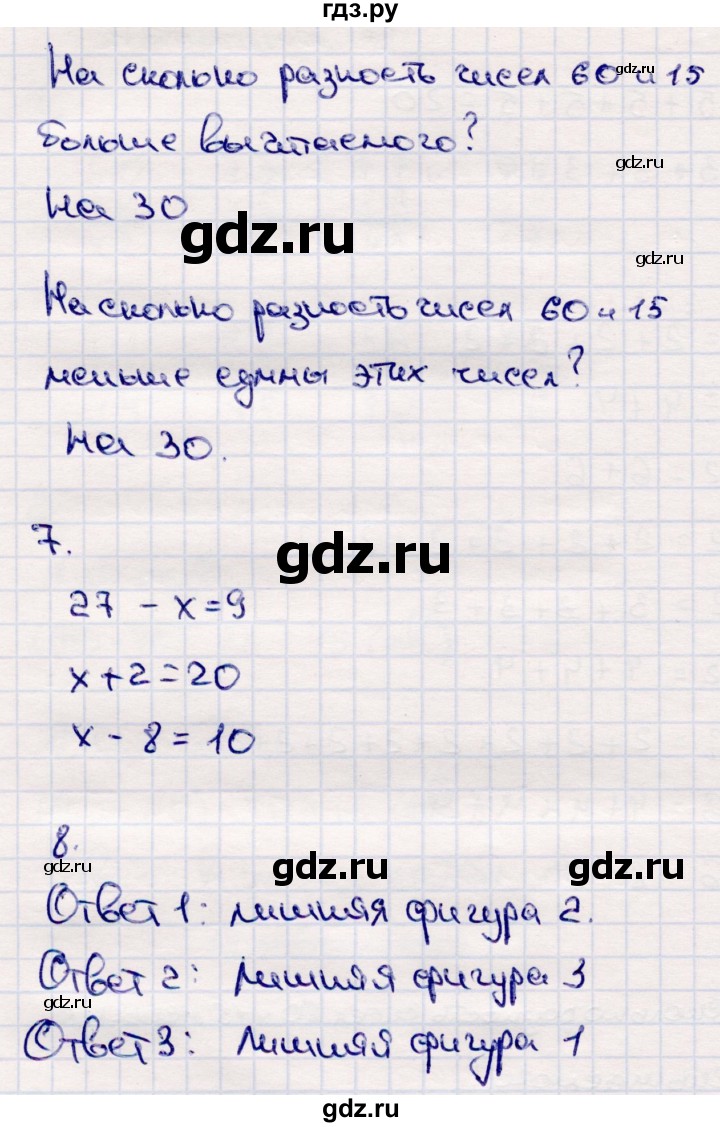 гдз.ру
На сколько разность чисел 60 и 15
gdz.ru
больше вычитаемого?
gdz.ru
На 30
gdz.ru
На сколько разность чисел 60 и 15
меньше суммы этих чисел?
gdz.ru
На 30.
7.
gdz.ru
27 - x = 9
x + 2 = 20
x - 8 = 10
8.
gdz.ru gdz.ru gdz.ru
Ответ 1: лишняя фигура 2.
Ответ 2: лишняя фигура 3
gdz.ru
Ответ 3: лишняя фигура 1
gdz.ru